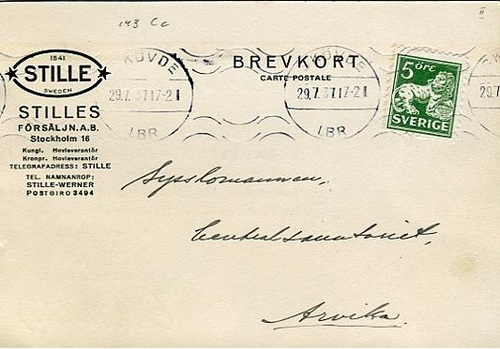 143 Cc
II
1841
STILLE
SWEDEN
STILLES
FÖRSÄLJN.A.B.
Stockholm 16
Kungl. Hovleverantör
Kronpr. Hovleverantör
TELEGRAFADRESS: STILLE
TEL. NAMNANROP:
STILLE-WERNER
POSTGIRO 3494
KÖVDE
29.7. 37 17-2
LBR
BREVKORT
CARTE POSTALE
29.7. 37 17-2
LBR
5 ÖRE
SVERIGE
29.7
Sysslomannen,
Centralsanatoriet,
Arvika.